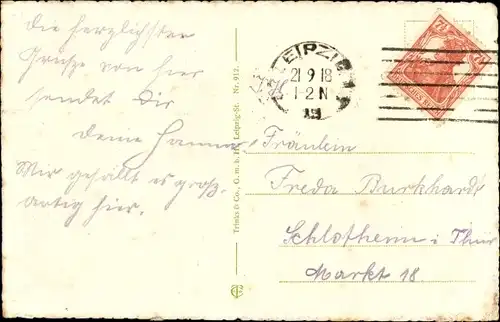 Die herzlichsten
Grüße von hier
sendet Dir
Deine Hanne.
Mir gefällt es groß-
artig hier.
Trinks & Co., G. m. b. H., Leipzig-St. Nr. 912.
LEIPZIG
21 9 18
1-2 N
Fräulein
Freda Burkhardt
Schlotheim i. Thür
Markt 18.